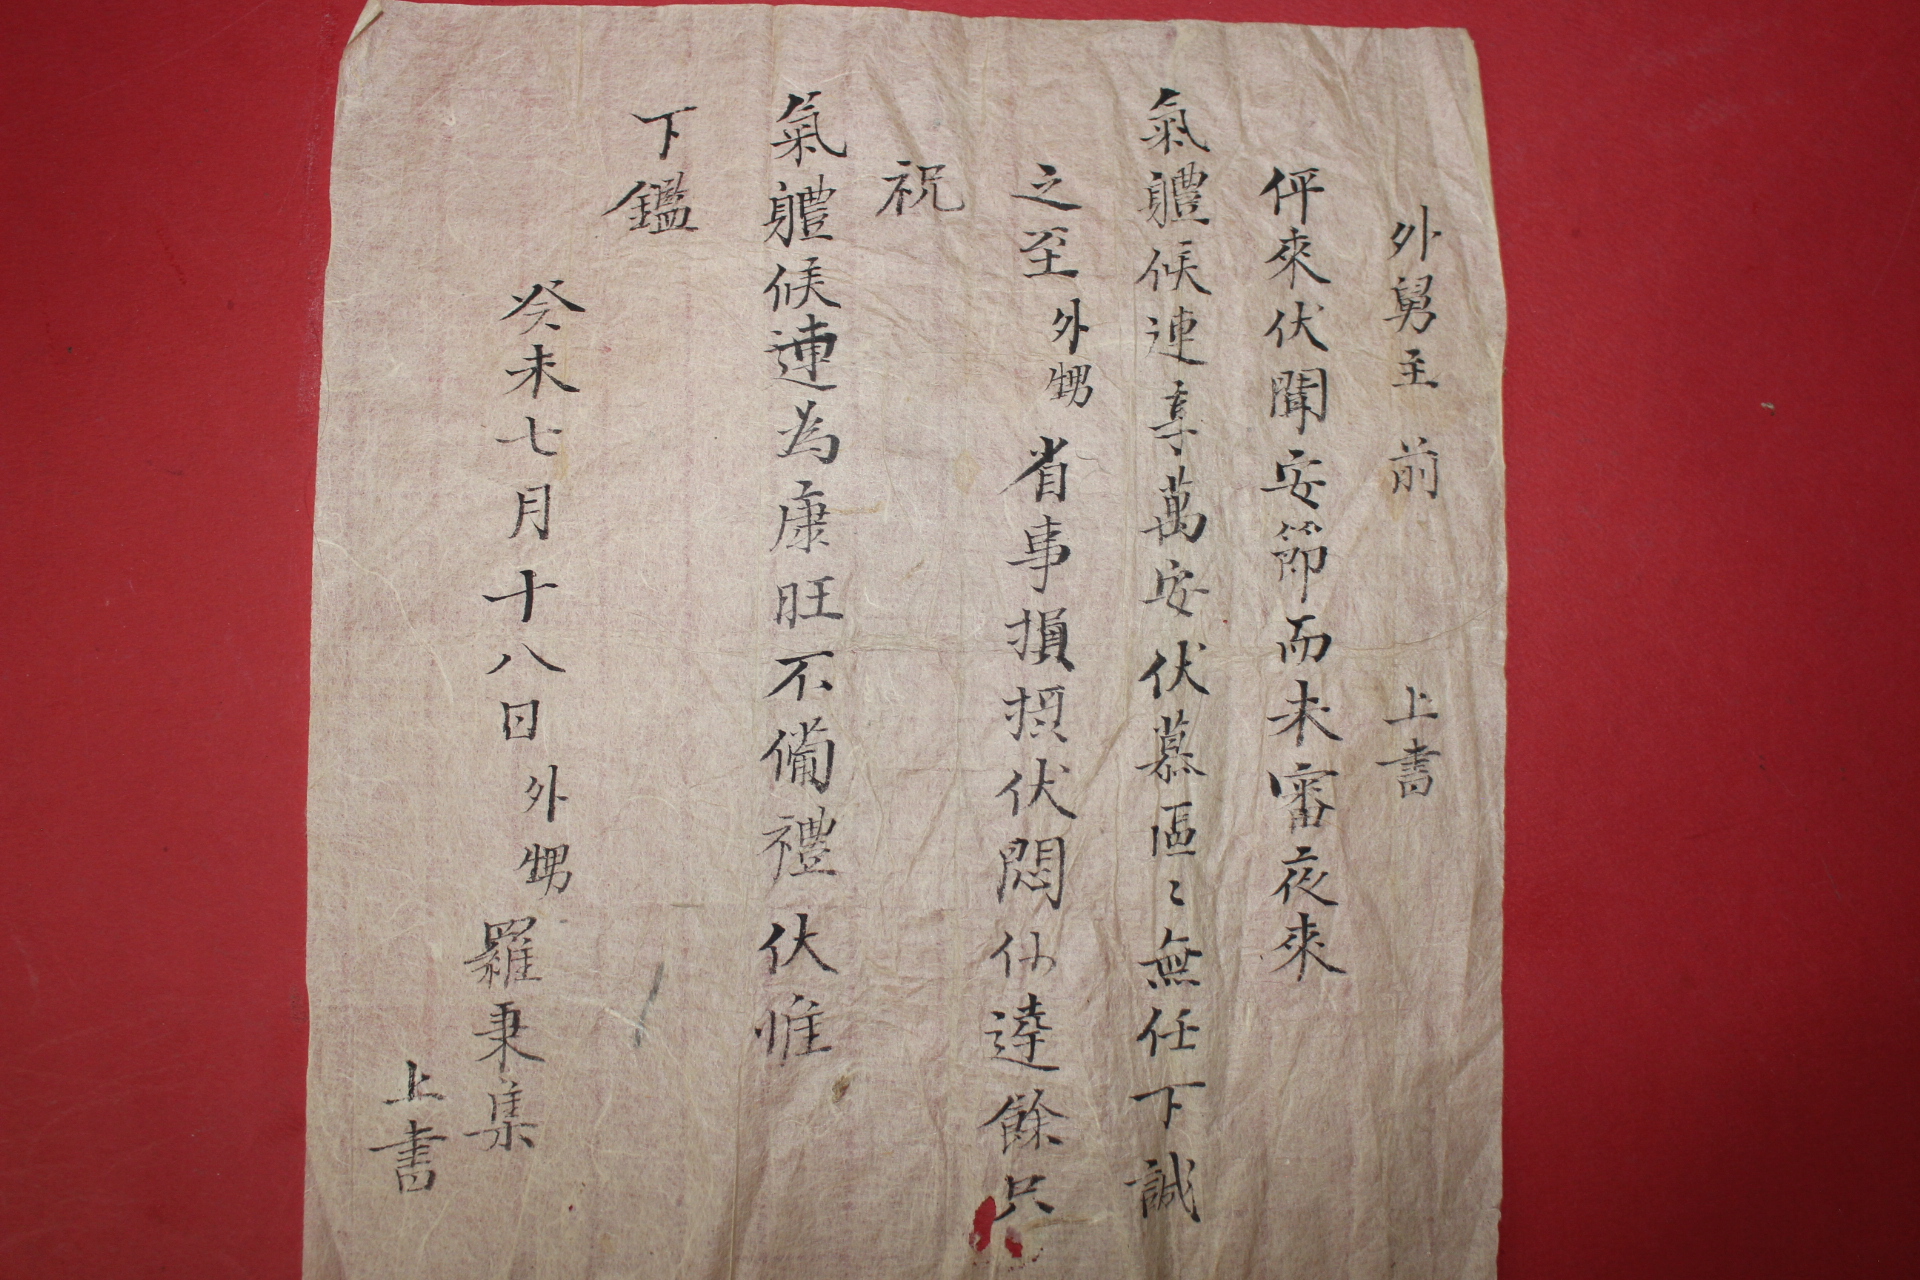 外舅主 前 上書
伻來伏聞安節而未審夜來
氣體候連享萬安伏慕區〻無任下誠
之至外甥省事損損伏悶仆達餘只
祝
氣體候連為康旺不備禮伏惟
下鑑
癸未七月十八日外甥羅秉集
上書